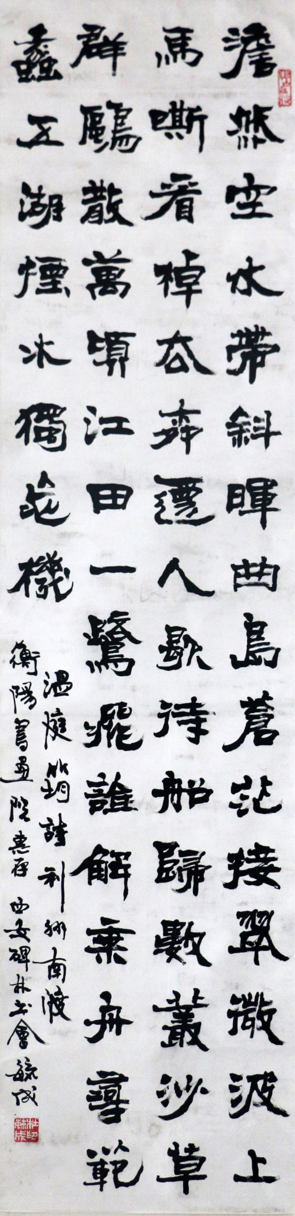 澹然空水帶斜暉曲島蒼茫接翠微波上
馬嘶看棹去柳邊人歇待船歸數叢沙草
群鷗散萬頃江田一鷺飛誰解乘舟尋範
蠡五湖煙水獨忘機
溫庭筠詩利州南渡
衡陽書畫院惠存 西安碑林書會